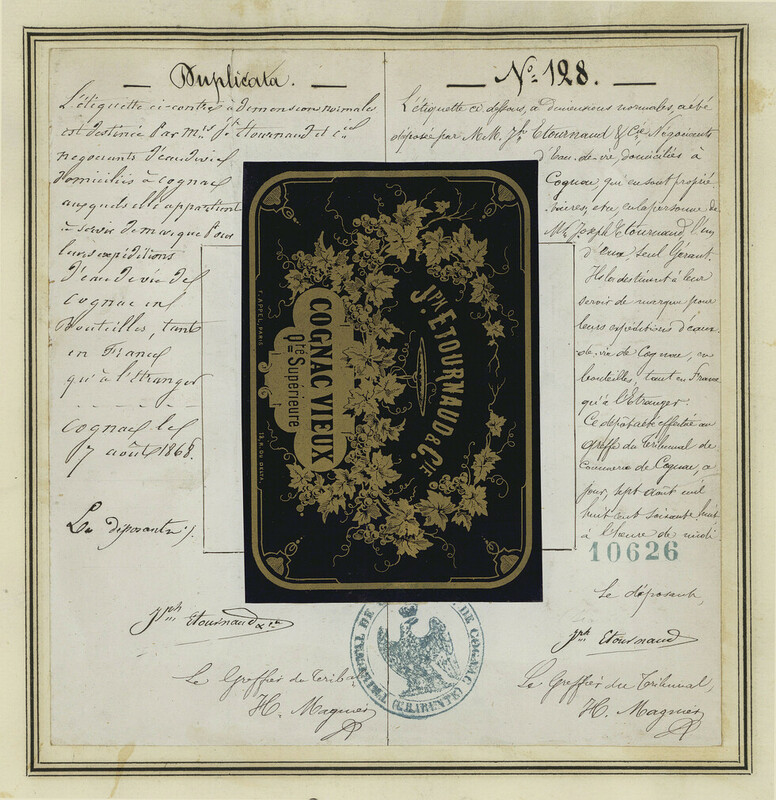 Duplicata.
L'étiquette ci-contre à dimension normales
est destinée par M.rs J.ph Etournaud et Cie
negociants d'eau de vie
domiciliés à Cognac
auxquels elle appartient
à servir de marque pour
leurs expéditions
d'eau de vie de
Cognac en
Bouteilles, tant
en France
qu'à l'Etranger
Cognac le
7 août 1868.
Le déposant
Jph Etournaud & Cie
Le Greffier du Tribu
H. Magnier
No. 128.
L'étiquette ci dessous, à dimensions normales, a été
déposée par M.M. Jph Etournaud & Cie Négociants
d'Eau-de-vie, domiciliés à
Cognac, qui en sont proprié
taires, et en la personne de
Mr. Joseph Etournaud l'un
d'eux Seul Gérant.
Ils la destinent à leur
servir de marque pour
leurs expéditions d'eau
de-vie de Cognac, en
bouteilles, tant en France
qu'à l'Etranger.
Ce dépôt a été effectué au
greffe du Tribunal de
Commerce de Cognac, ce
jour, sept août mil
huit cent soixante huit
à l'heure de midi
10626
Le déposant,
Jph Etournaud
Le Greffier du Tribunal,
H. Magnier
JPH. ETOURNAUD & CIE
COGNAC VIEUX
Qté Supérieure
F. APPEL, PARIS
12, R. DU DELTA.
TRIBUNAL DE
DE COGNAC
(CHARENTE)